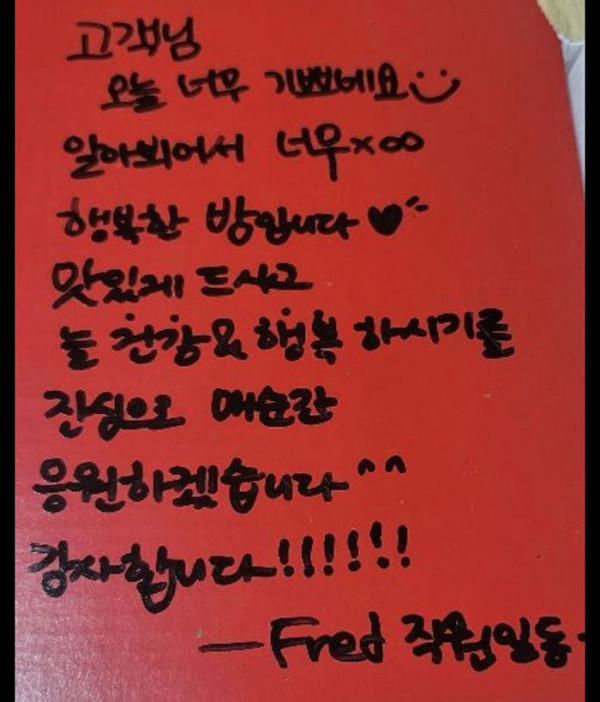 고객님
오늘 너무 기쁘네요
알아뵈어서 너무×∞
행복한 밤입니다 ♥
맛있게 드시고
늘 건강&행복 하시기를
진심으로 매순간
응원하겠습니다^^
감사합니다!!!!!!
-Fred 직원일동-